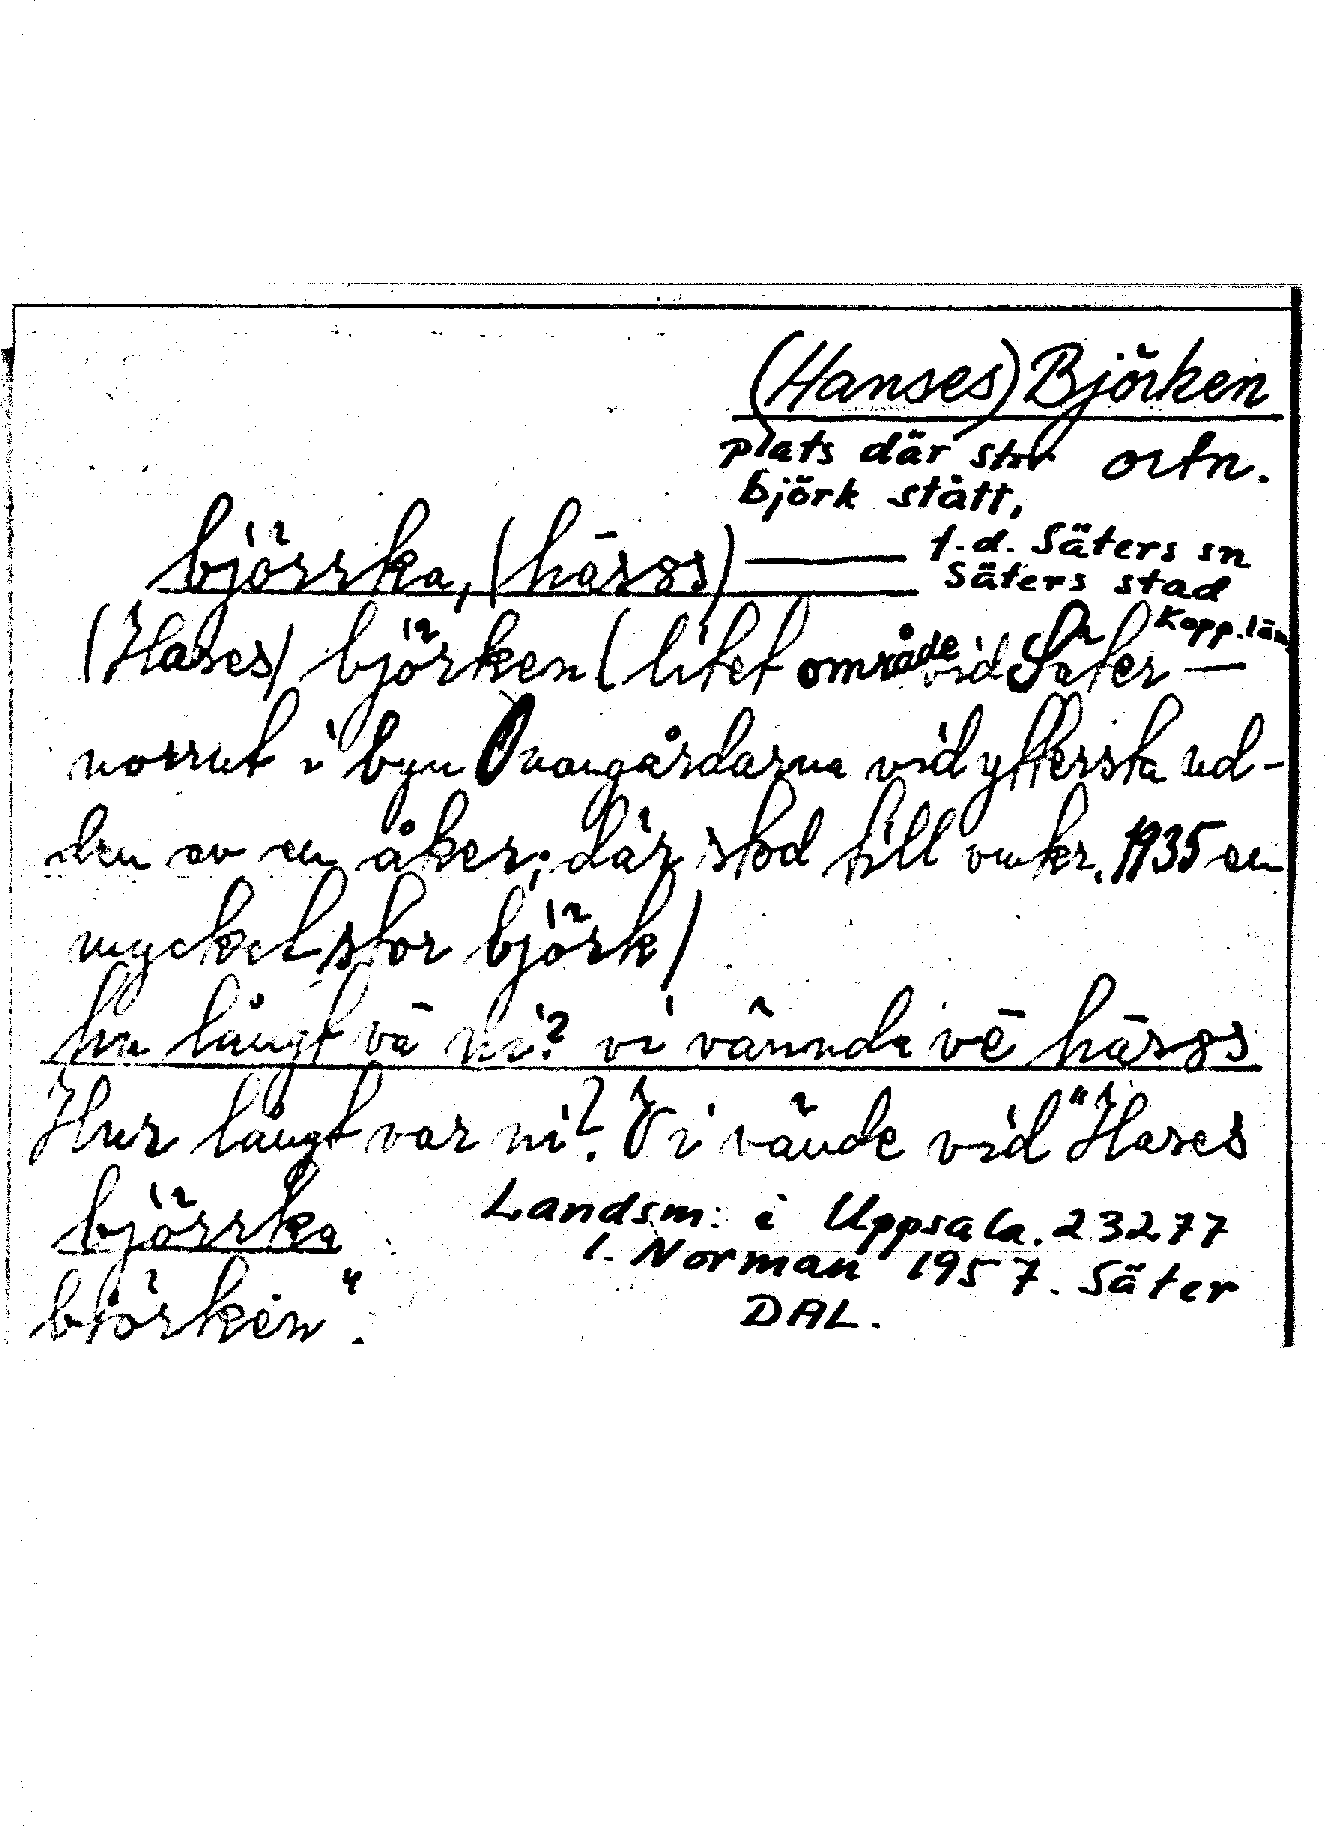 (Hanses) Björken
plats där stor ortn.
björk stått,
björrka, (hāsøs) — f.d. Säters sn
Säters stad
Kopp. län
(Hases) björken (litet område vid Säter —
norrut i byn Ovangårdarna vid yttersta ud-
den av en åker; där stod till omkr. 1935 en
mycket stor björk)
hu långt va ni? vi vännda vē hāsøs
Hur långt var ni? Vi vände vid "Hases
björrka
björken".
Landsm. i Uppsala. 23277
I. Norman 1957. Säter
DAL.